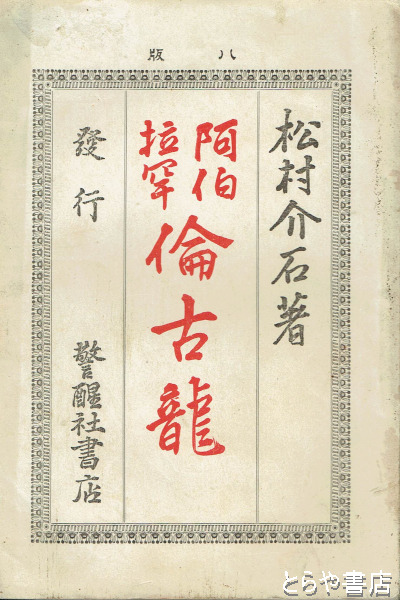 八版
松村介石著
阿伯
拉罕
倫古龍
發行 警醒社書店
とらや書店